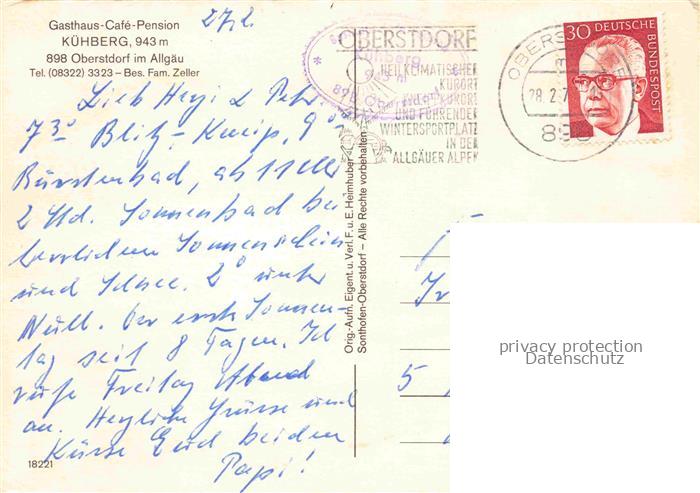 Gasthaus-Café-Pension
KÜHBERG, 943 m
898 Oberstdorf im Allgäu
Tel. (08322) 3323 – Bes. Fam. Zeller
27.2.
Lieb &
7 3⁰ Blitz-, 9 00
Bürstenbad, ab 11
2 Std. Sonnenbad bei
herrlichem Sonnenschein
und Schnee. 2⁰ unter
Null. Der erste Sonnen-
tag seit 8 Tagen. Ich
rufe Freitag Abend
an. Herzliche Grüsse und
Küsse Euch beiden
Papi!
18221
Orig.-Aufn. Eigent. u. Verl. F. u. E. Heimhuber
Sonthofen-Oberstdorf – Alle Rechte vorbehalten
Kühberg
898 Oberstdorf
OBERSTDORF
HEILKLIMATISCHER
KURORT
KURORT
UND FÜHRENDER
WINTERSPORTPLATZ
IN DEN
ALLGÄUER ALPEN
OBERS
28.2.7
898
30 DEUTSCHE
BUNDESPOST
5
privacy protection
Datenschutz